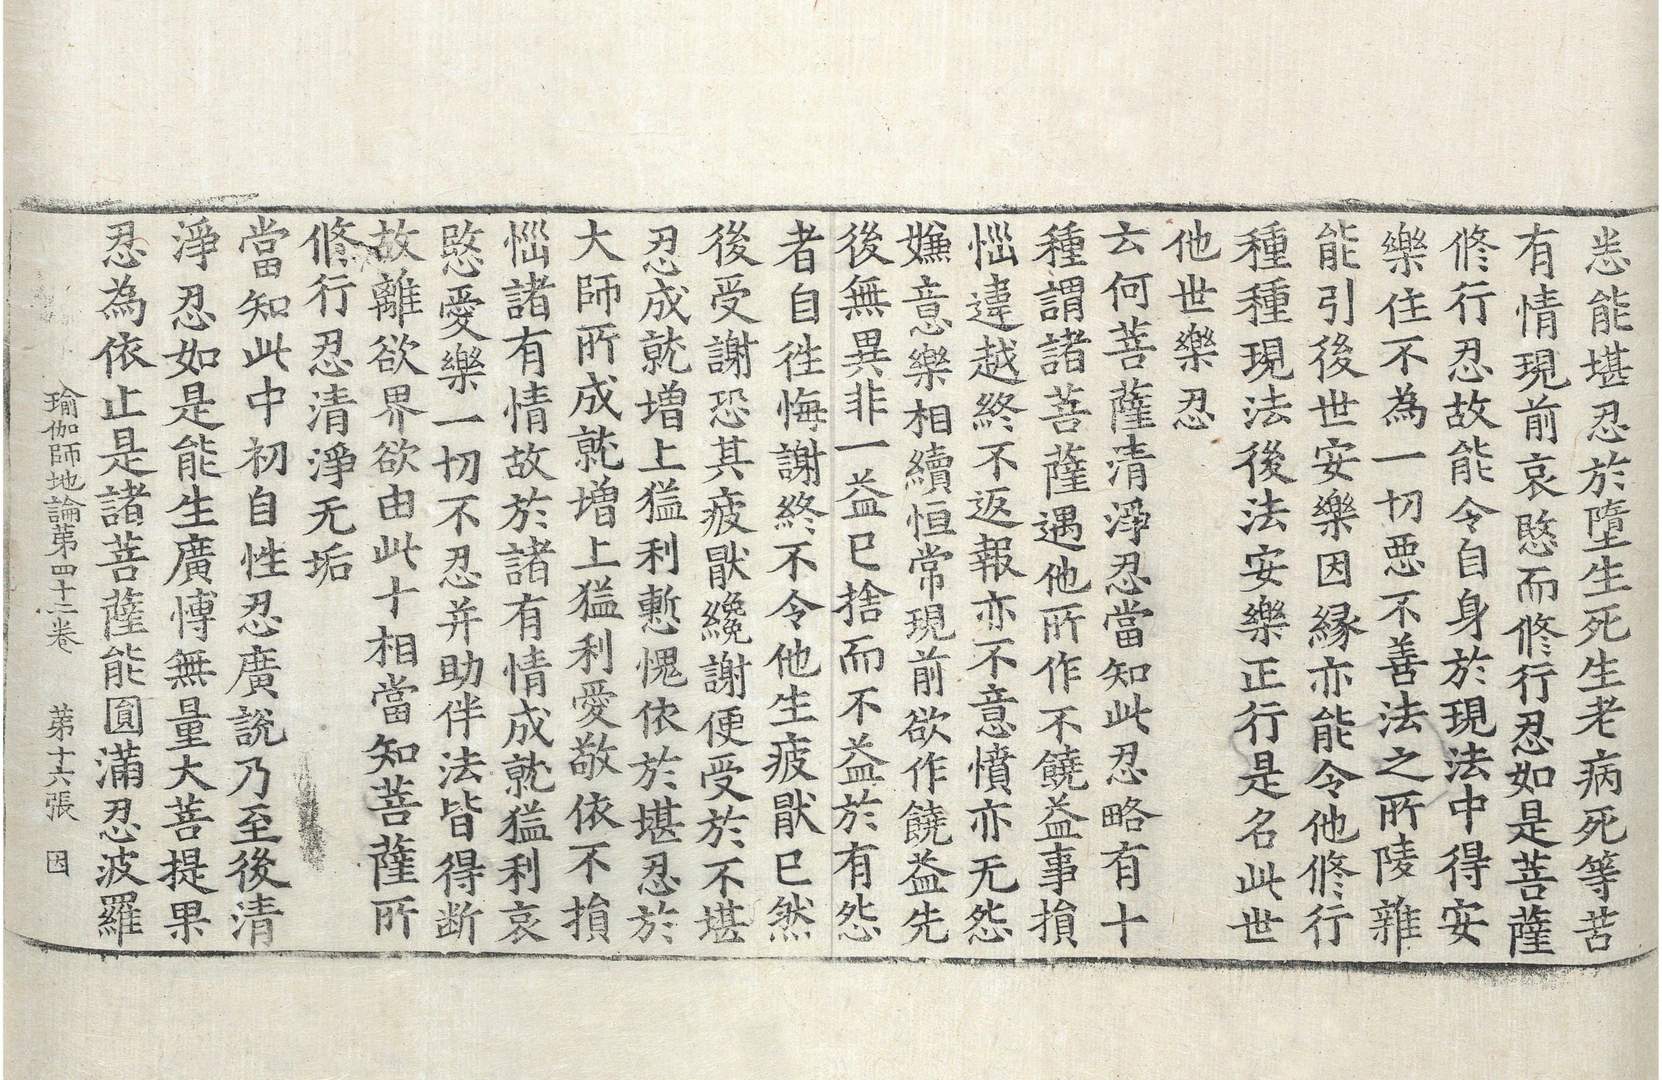 恙能堪忍於墮生死生老病死等苦
有情現前哀愍而修行忍如是菩薩
修行忍故能令自身於現法中得安
樂住不為一切惡不善法之所陵雜
能引後世安樂因緣亦能令他修行
種種現法後法安樂正行是名此世
他世樂忍
云何菩薩清淨忍當知此忍略有十
種謂諸菩薩遇他所作不饒益事損
惱違越終不返報亦不意憤亦无怨
嫌意樂相續恒常現前欲作饒益先
後無異非一益已捨而不益於有怨
者自往悔謝終不令他生疲猒已然
後受謝恐其疲猒纔謝便受於不堪
忍成就增上猛利慙愧依於堪忍於
大師所成就增上猛利愛敬依不損
惱諸有情故於諸有情成就猛利哀
愍愛樂一切不忍并助伴法皆得断
故離欲界欲由此十相當知菩薩所
修行忍清淨无垢
當知此中初自性忍廣說乃至後清
淨忍如是能生廣博無量大菩提果
忍為依止是諸菩薩能圓滿忍波羅
瑜伽師地論第四十二卷 苐十六張 因